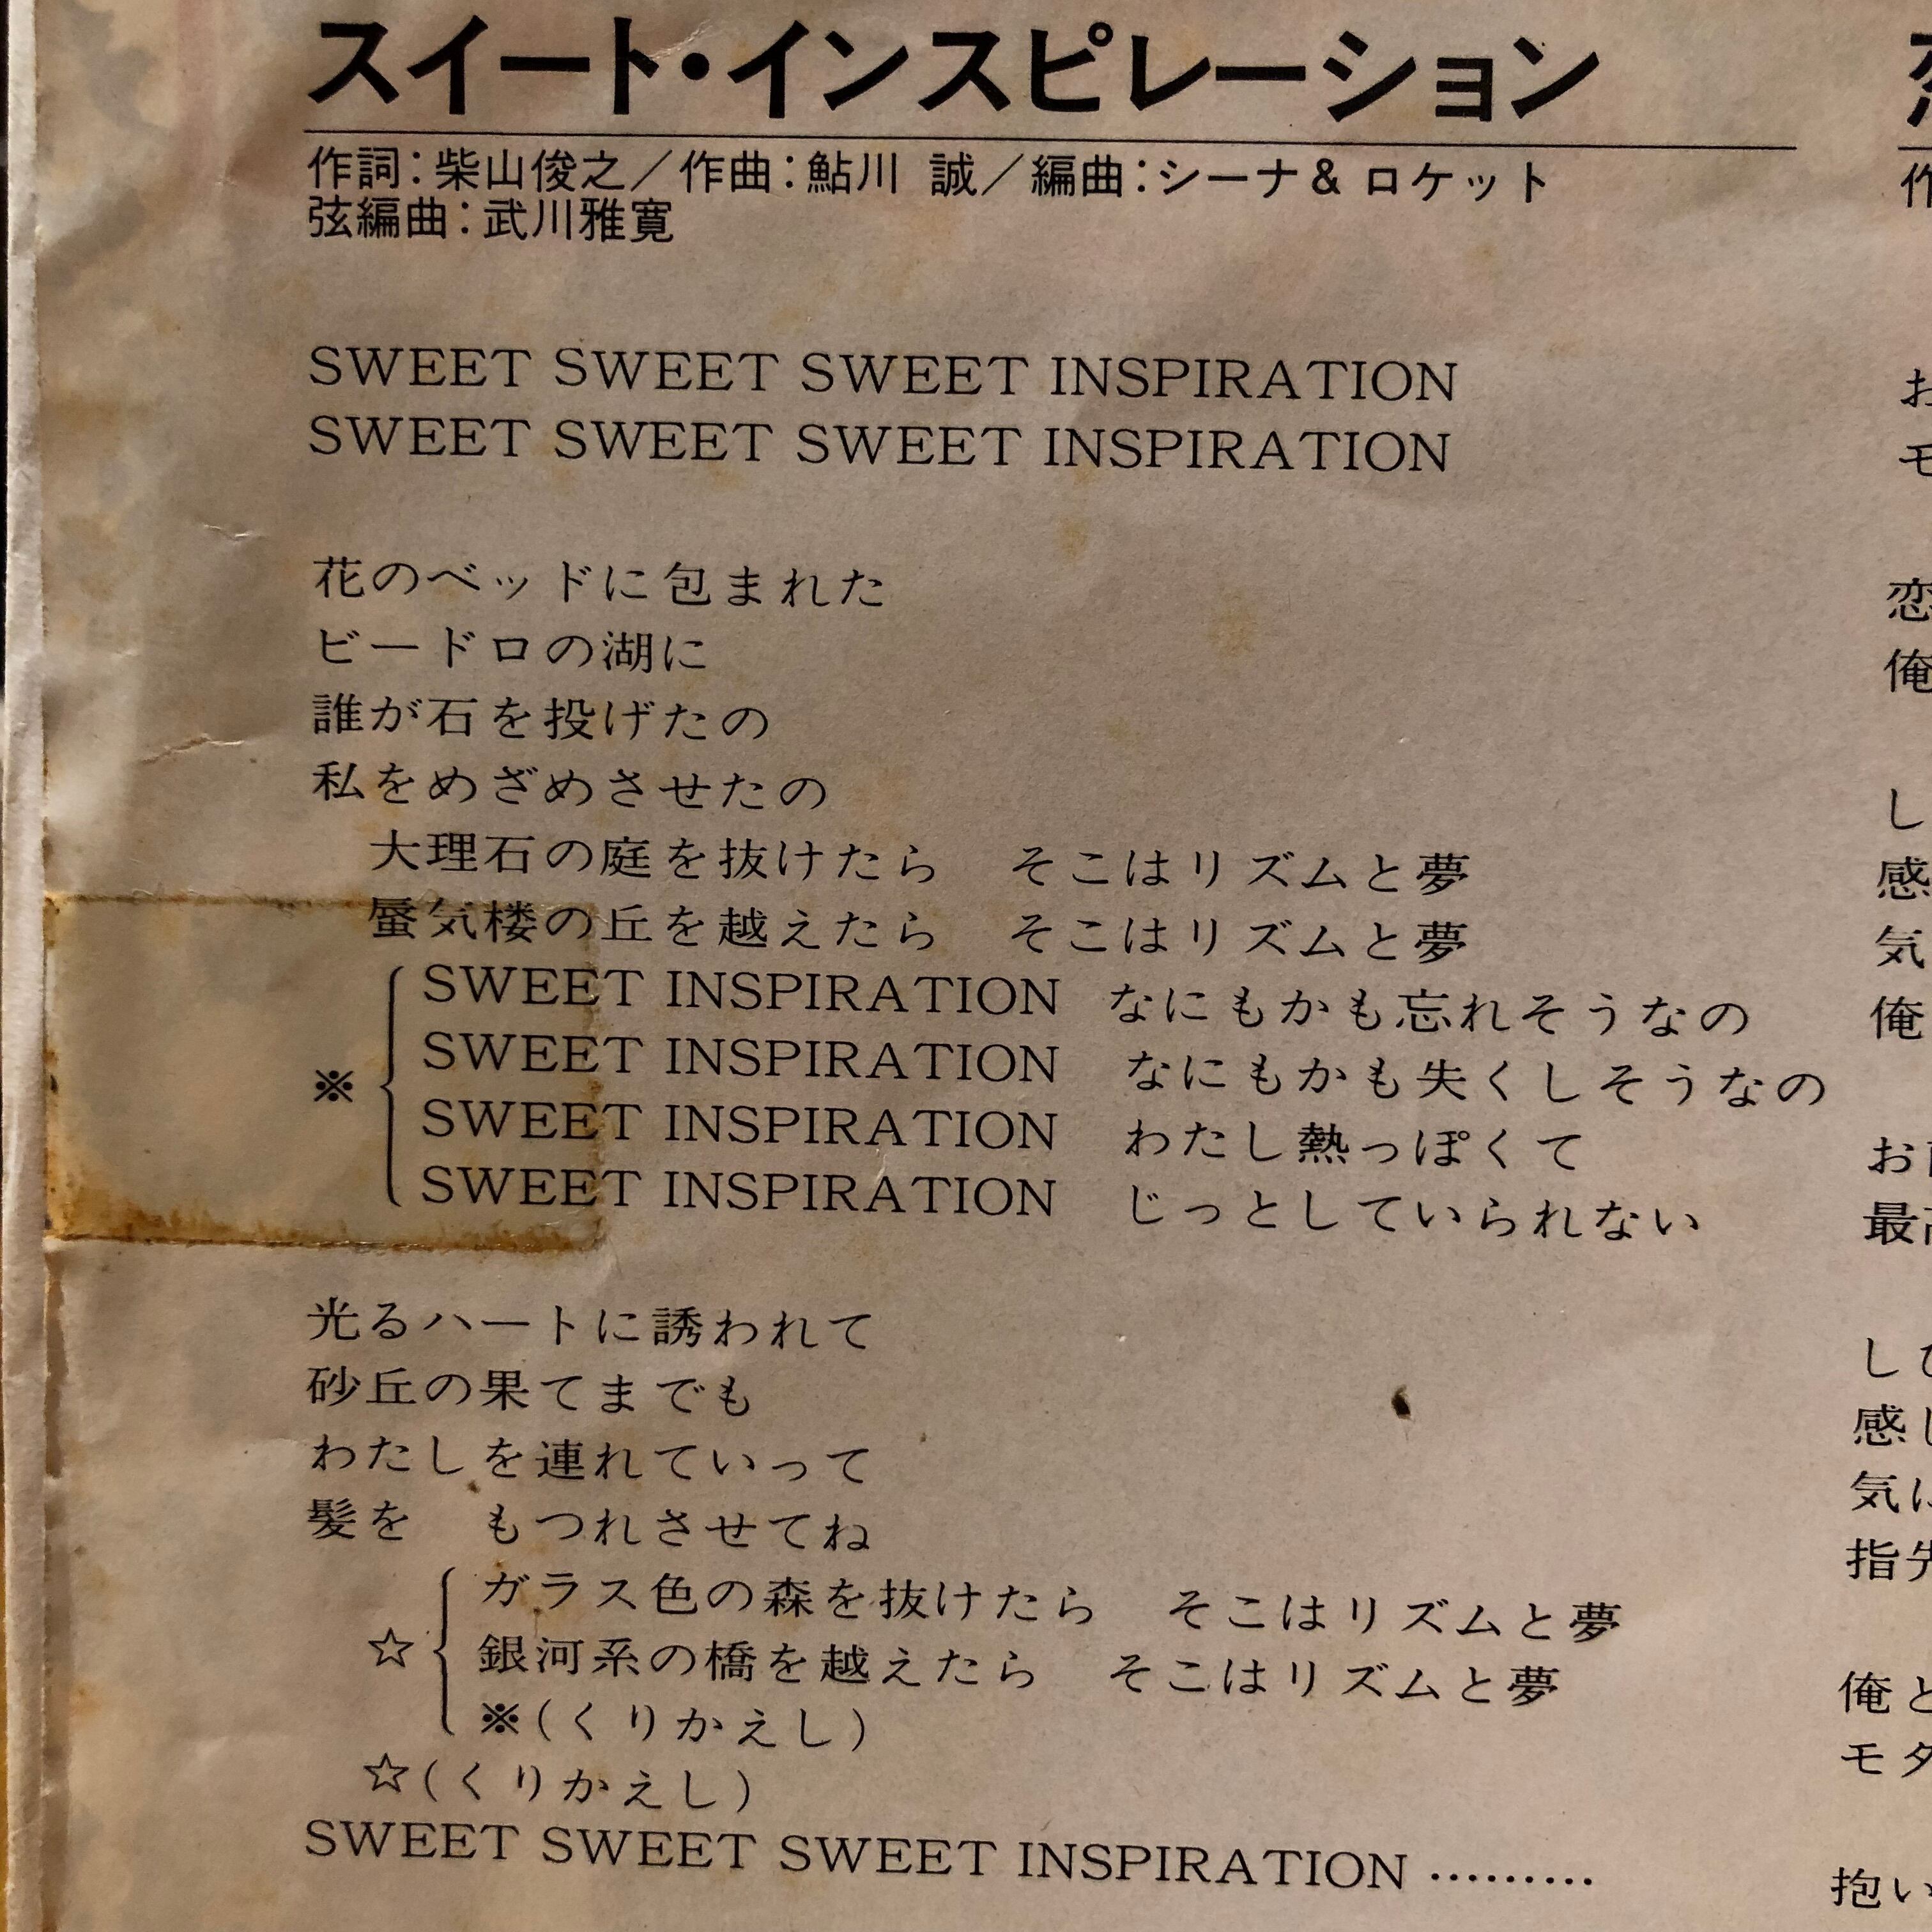 スイート・インスピレーション
作詞：柴山俊之／作曲：鮎川 誠／編曲：シーナ& ロケット
弦編曲：武川雅寛
SWEET SWEET SWEET INSPIRATION
SWEET SWEET SWEET INSPIRATION
花のベッドに包まれた
ビードロの湖に
誰が石を投げたの
私をめざめさせたの
大理石の庭を抜けたら　そこはリズムと夢
蜃気楼の丘を越えたら　そこはリズムと夢
SWEET INSPIRATION　なにもかも忘れそうなの
SWEET INSPIRATION　なにもかも失くしそうなの
※
SWEET INSPIRATION　わたし熱っぽくて
SWEET INSPIRATION　じっとしていられない
光るハートに誘われて
砂丘の果てまでも
わたしを連れていって
髪を　もつれさせてね
ガラス色の森を抜けたら　そこはリズムと夢
☆ 銀河系の橋を越えたら　そこはリズムと夢
※(くりかえし)
☆(くりかえし)
SWEET SWEET SWEET INSPIRATION ………
作
お
モ
恋
俺
し
感
気
俺
お
最
し
感し
気
指先
俺と
モタ
抱い